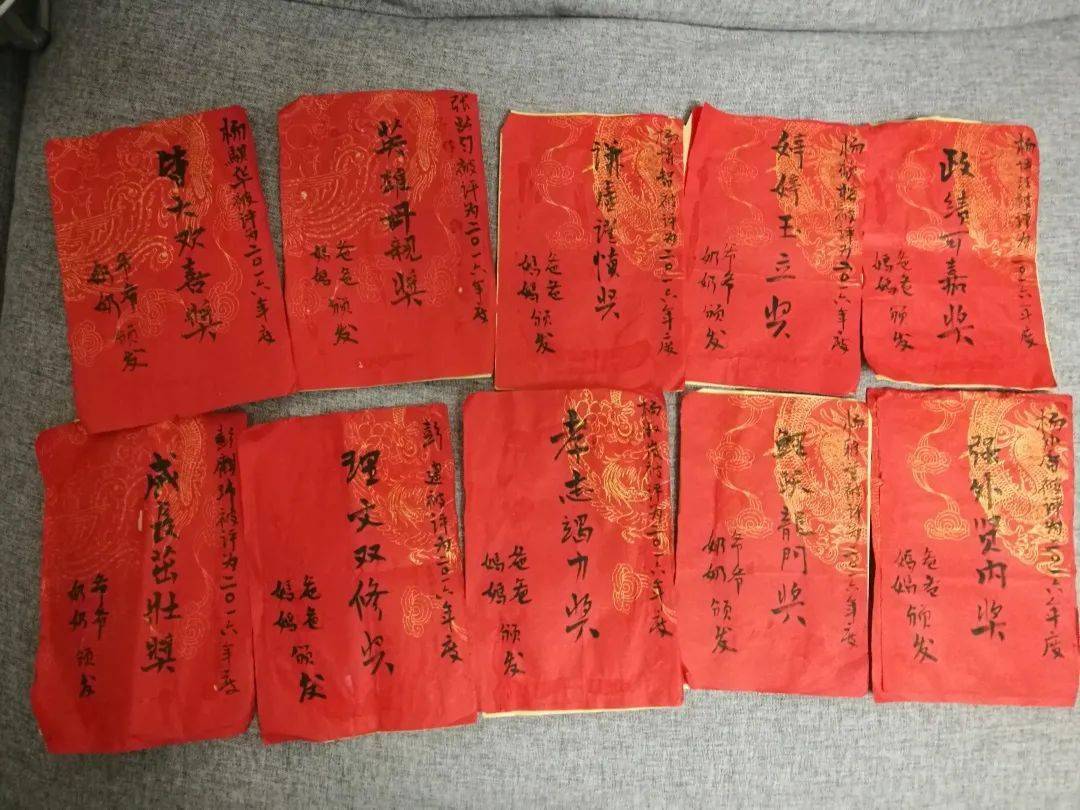 杨骐华被评为二〇一六年度
皆大欢喜獎
爷爷
奶奶
颁发
被评为二〇一六年度
英雄母親獎
爸爸
妈妈
颁发
被评为二〇一六年度
謙虚谨慎奖
爸爸
媽媽
颁发
被评为二〇一六年度
婷婷玉立奖
爷爷
奶奶
颁发
被评为二〇一六年度
政绩可嘉奖
爸爸
媽媽
颁发
被评为二〇一六年度
成長茁壯獎
爷爷
奶奶
颁发
被评为二〇一六年度
理文双修奖
爸爸
媽媽
颁发
被评为二〇一六年度
孝志竭力奖
爸爸
媽媽
颁发
被评为二〇一六年度
鲤跃龍門獎
爷爷
奶奶
颁发
被评为二〇一六年度
强外贤内奖
爸爸
媽媽
颁发